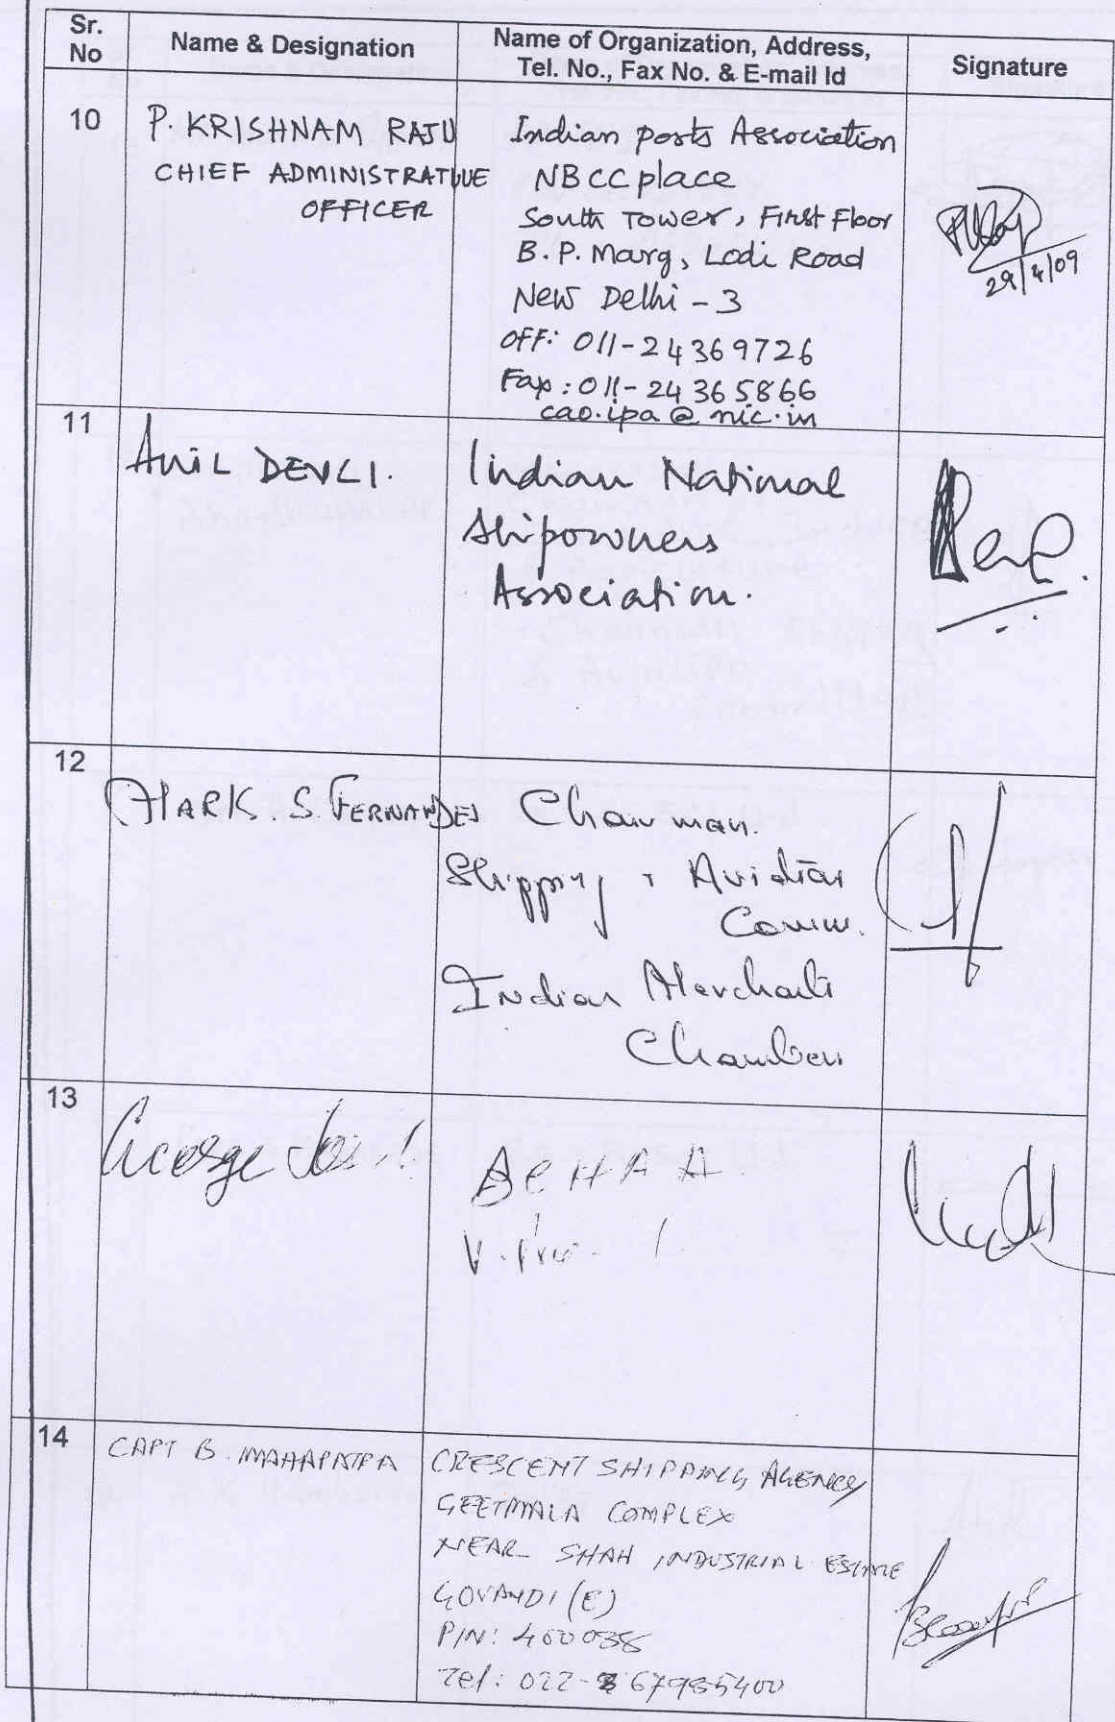 Sr. No
Name & Designation
Name of Organization, Address, Tel. No., Fax No. & E-mail Id
Signature
10
P. KRISHNAM RAJU
CHIEF ADMINISTRATIVE
OFFICER
Indian ports Association
NBCC place
South Tower, First Floor
B.P. Marg, Lodi Road
New Delhi - 3
OFF: 011-24369726
Fax: 011-24365866
cao.ipa@nic.in
29/4/09
11
ANIL DEVLI.
Indian National
Shipowners
Association.
12
MARK. S. FERNANDES
Chairman.
Shipping & Aviation
Comm.
Indian Merchants
Chamber
13
George
14
CAPT B. MAHAPATRA
CRESCENT SHIPPING AGENCY
GEETMALA COMPLEX
NEAR SHAH INDUSTRIAL ESTATE
GOVANDI (E)
PIN:
Tel: 022-67985400